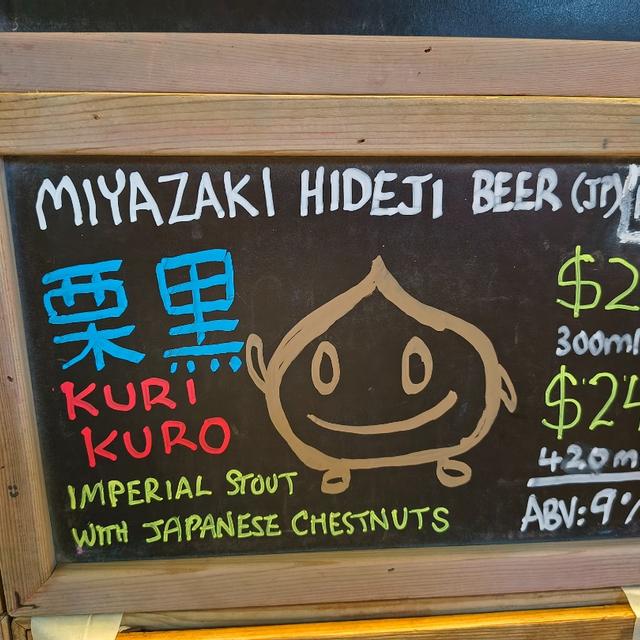 MIYAZAKI HIDEJI BEER (JP)
栗黒
KURI
KURO
IMPERIAL STOUT
WITH JAPANESE CHESTNUTS
$2
300ml
$24
420m
ABV: 9%